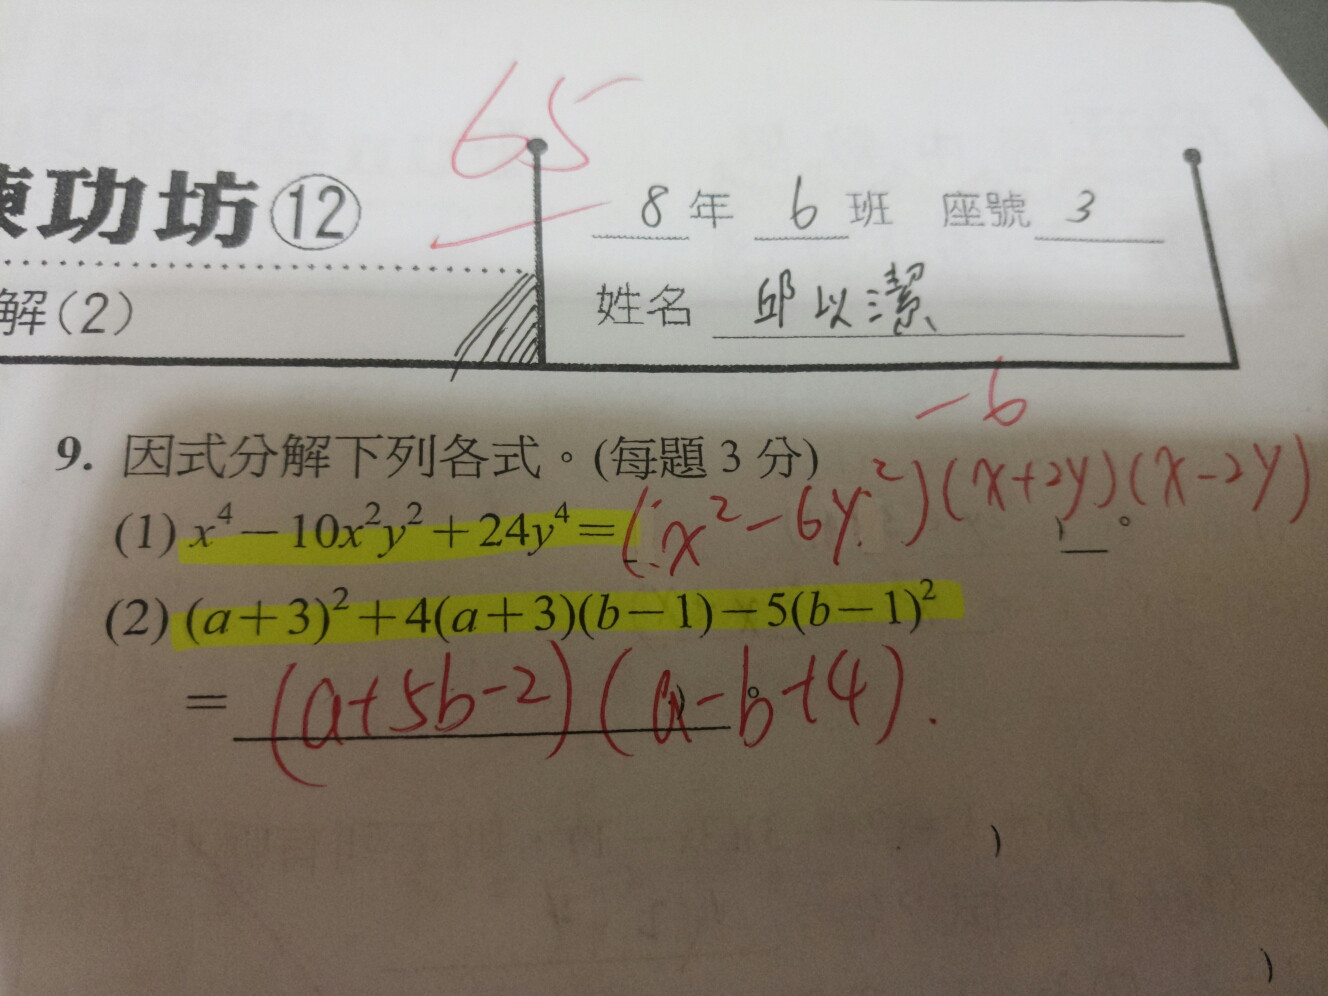 65
功坊⑫
解(2)
8年 6班 座號 3
姓名 邱以潔
-6
9. 因式分解下列各式。(每題 3 分)
(1) x⁴-10x²y²+24y⁴=(x²-6y²)(x+2y)(x-2y)。
(2) (a+3)²+4(a+3)(b-1)-5(b-1)²
= (a+5b-2)(a-b+4).